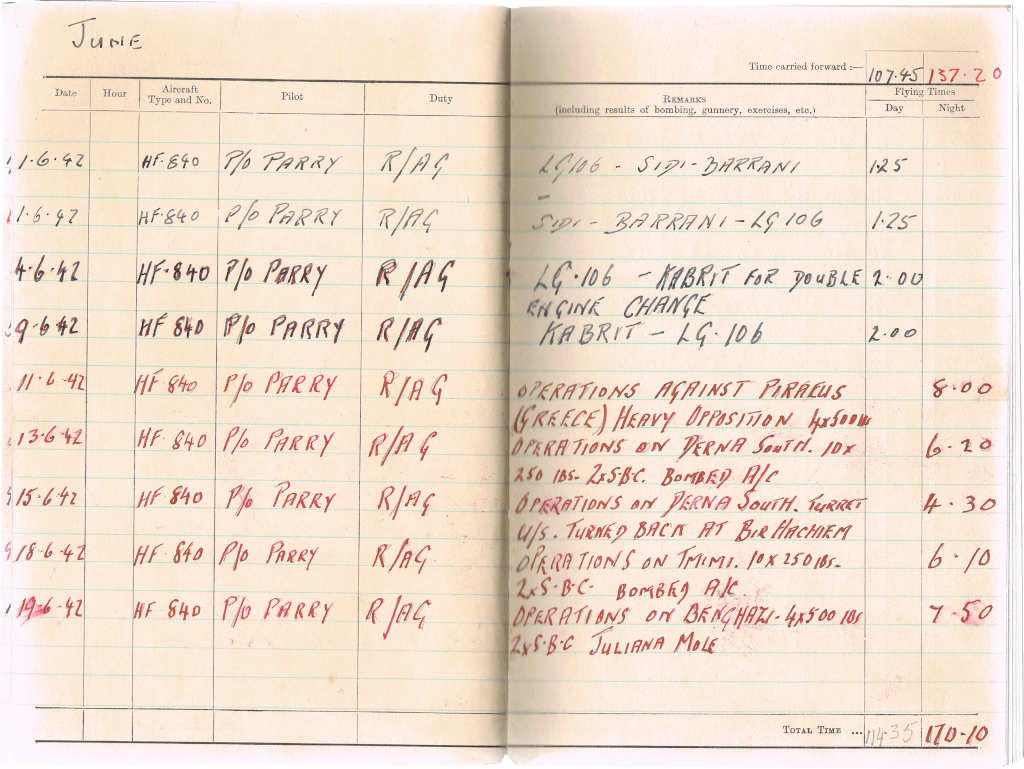 JUNE
Time carried forward :— 107.45 137.20
Date Hour Aircraft Type and No. Pilot Duty REMARKS (including results of bombing, gunnery, exercises, etc.) Flying Times Day Night
1.6.42 HF.840 P/O PARRY R/AG LG106 - SIDI-BARRANI 1.25
1.6.42 HF.840 P/O PARRY R/AG SIDI-BARRANI-LG106 1.25
4.6.42 HF.840 P/O PARRY R/AG LG.106 - KABRIT FOR DOUBLE 2.00
ENGINE CHANGE
9.6.42 HF 840 P/O PARRY R/AG KABRIT - LG.106 2.00
11.6.42 HF 840 P/O PARRY R/AG OPERATIONS AGAINST PIRAEUS 8.00
(GREECE) HEAVY OPPOSITION 4x500lb
13.6.42 HF.840 P/O PARRY R/AG OPERATIONS ON DERNA SOUTH. 10x 6.20
250 lbs. 2xS.B.C. BOMBED A/C
15.6.42 HF.840 P/O PARRY R/AG OPERATIONS ON DERNA SOUTH. TURRET 4.30
U/S. TURNED BACK AT BIR HACHIEM
18.6.42 HF.840 P/O PARRY R/AG OPERATIONS ON TMIMI. 10x250 lbs. 6.10
2xS.B.C. BOMBED A/C
19.6.42 HF 840 P/O PARRY R/AG OPERATIONS ON BENGHAZI. 4x500 lbs 7.50
2xS.B.C JULIANA MOLE
TOTAL TIME ... 114.35 170.10